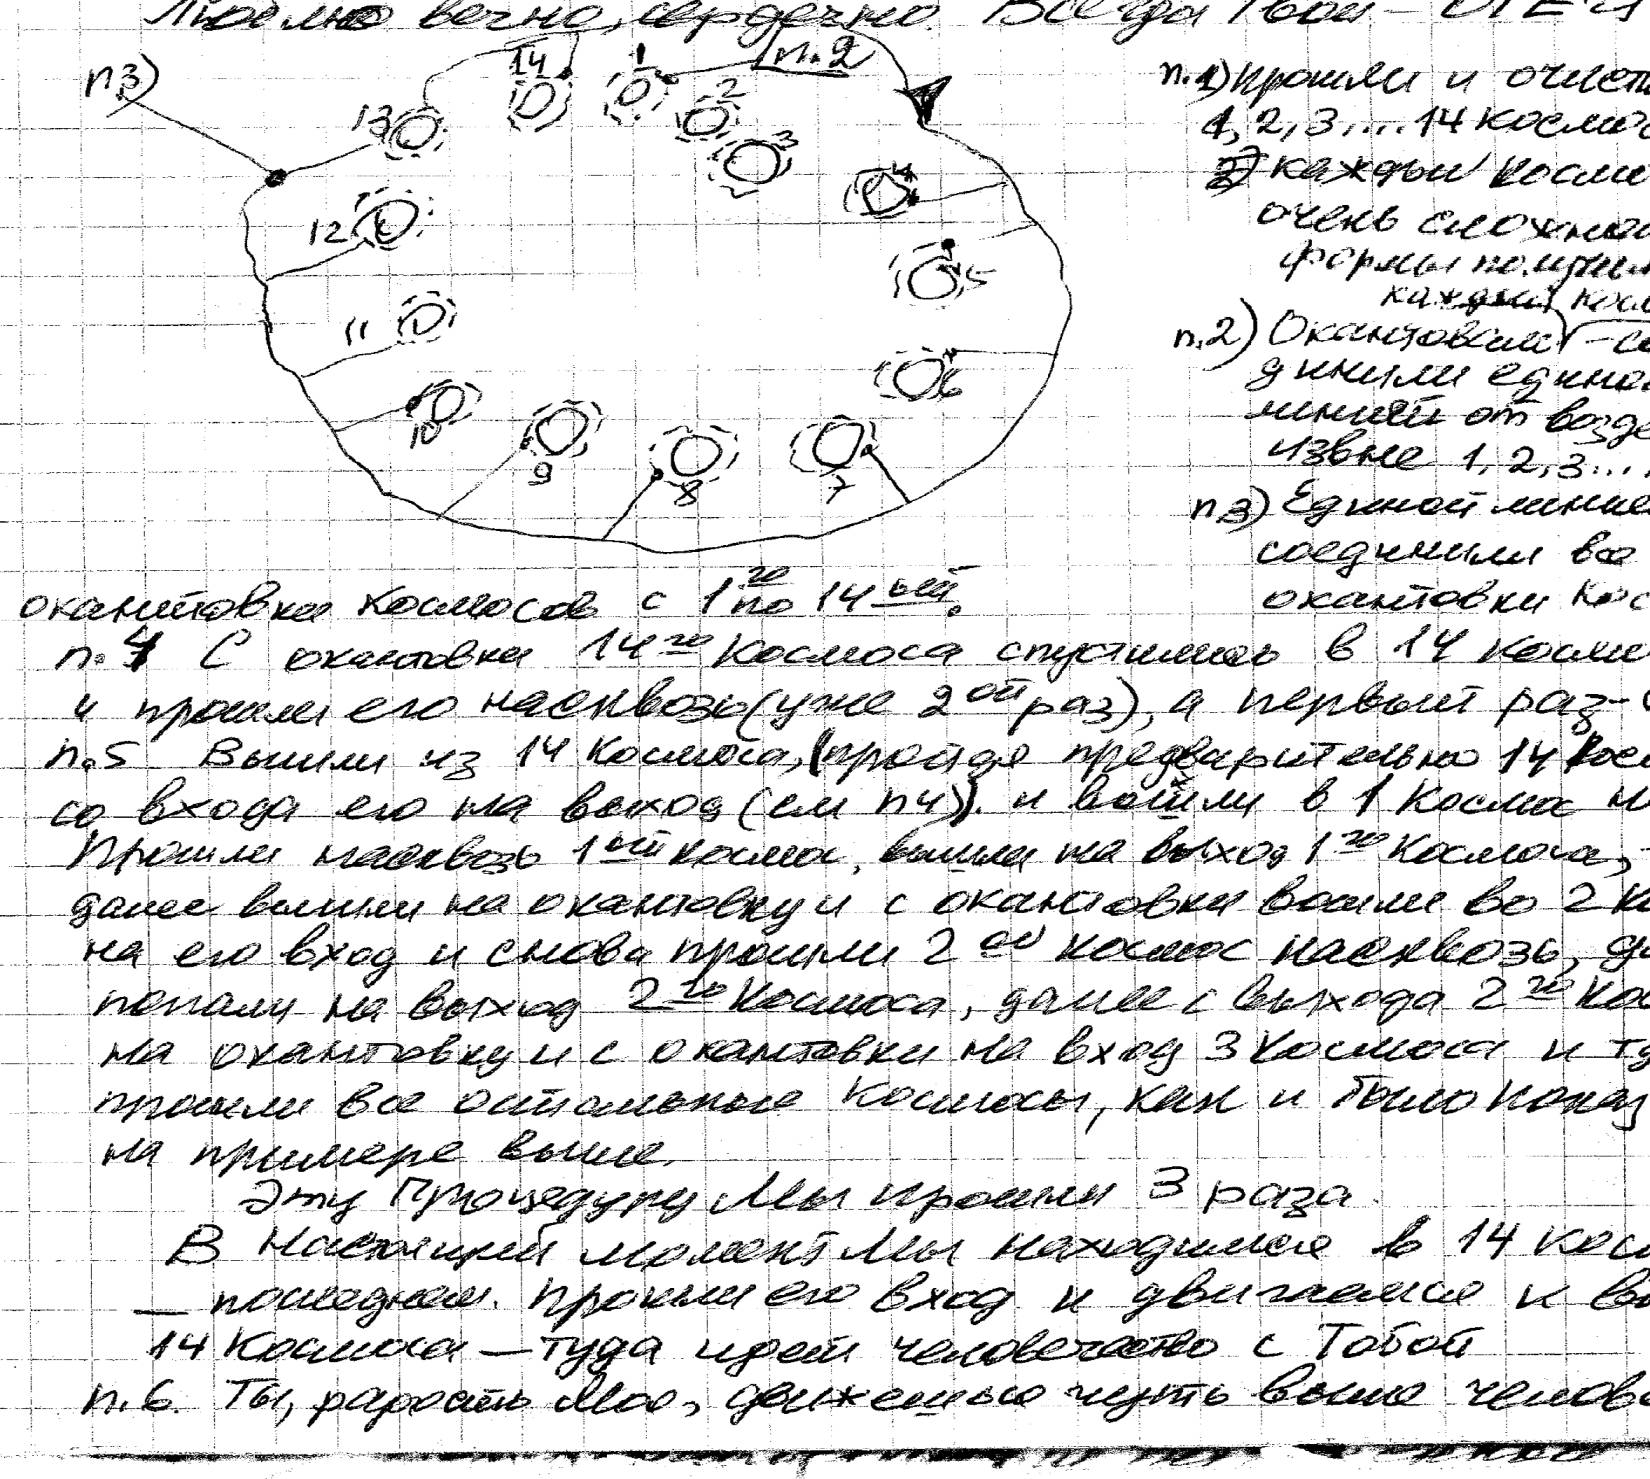 Люблю вечно, сердечно. Всегда Твой – ОТЕЦ
п3)
14
1
п.2
2
13
3
4
12
5
11
6
10
9
8
7
п.1) прошли и очист
1, 2, 3.... 14 Космос
2) каждый Косм
очень сложной
формы получил
каждый Кос
п.2) Окантовали – со
динили едино
линией от возде
извне 1, 2, 3...
п3) Единой линие
соединили все
окантовки Кос
окантовки Космосов с 1го по 14ый.
п.4 С окантовки 14го Космоса спустились в 14 Косм
и прошли его насквозь (уже 2ой раз), а первый раз –
п.5 Вышли из 14 Космоса, (пройдя предварительно 14 Кос
со входа его на выход (см п4)). и вошли в 1 Космос н
Прошли насквозь 1ый Космос, вышли на выход 1го Космоса,
далее вышли на окантовку и с окантовки вошли во 2 К
на его вход и снова прошли 2ой космос насквозь, да
попали на выход 2го Космоса, далее с выхода 2го Кос
на окантовку и с окантовки на вход 3 Космоса и т
прошли все остальные Космосы, как и было показ
на примере выше.
Эту Процедуру Мы прошли 3 раза.
В Настоящий момент Мы находимся в 14 Косм
— последнем. Прошли его вход и двигаемся к вы
14 Космоса — туда идет человечество с Тобой
п.6. Ты, радость Моя, движешься чуть выше челов